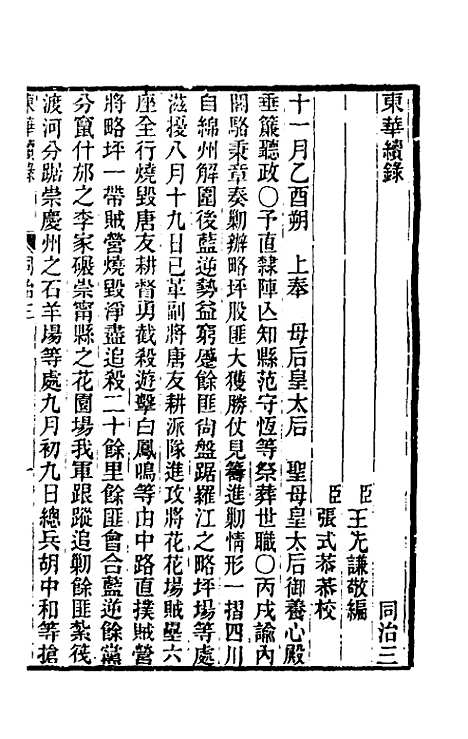 東華續錄 同治三
臣王先謙敬編
臣張式恭恭校
十一月乙酉朔 上奉 母后皇太后 聖母皇太后御養心殿
垂簾聽政○予直隸陣亾知縣范守恆等祭葬世職○丙戌諭內
閣駱秉章奏勦辦略坪股匪大獲勝仗見籌進勦情形一摺四川
自綿州解圍後藍逆勢益窮蹙餘匪尙盤踞羅江之略坪場等處
滋擾八月十九日已革副將唐友耕派隊進攻將花花場賊壘六
座全行燒毀唐友耕督勇截殺遊擊白鳳鳴等由中路直撲賊營
將略坪一帶賊營燒毀淨盡追殺二十餘里餘匪會合藍逆餘黨
分竄什邡之李家碾崇甯縣之花園場我軍跟蹤追勦餘匪紮筏
渡河分踞崇慶州之石羊場等處九月初九日總兵胡中和等搶
東華續錄 同治三